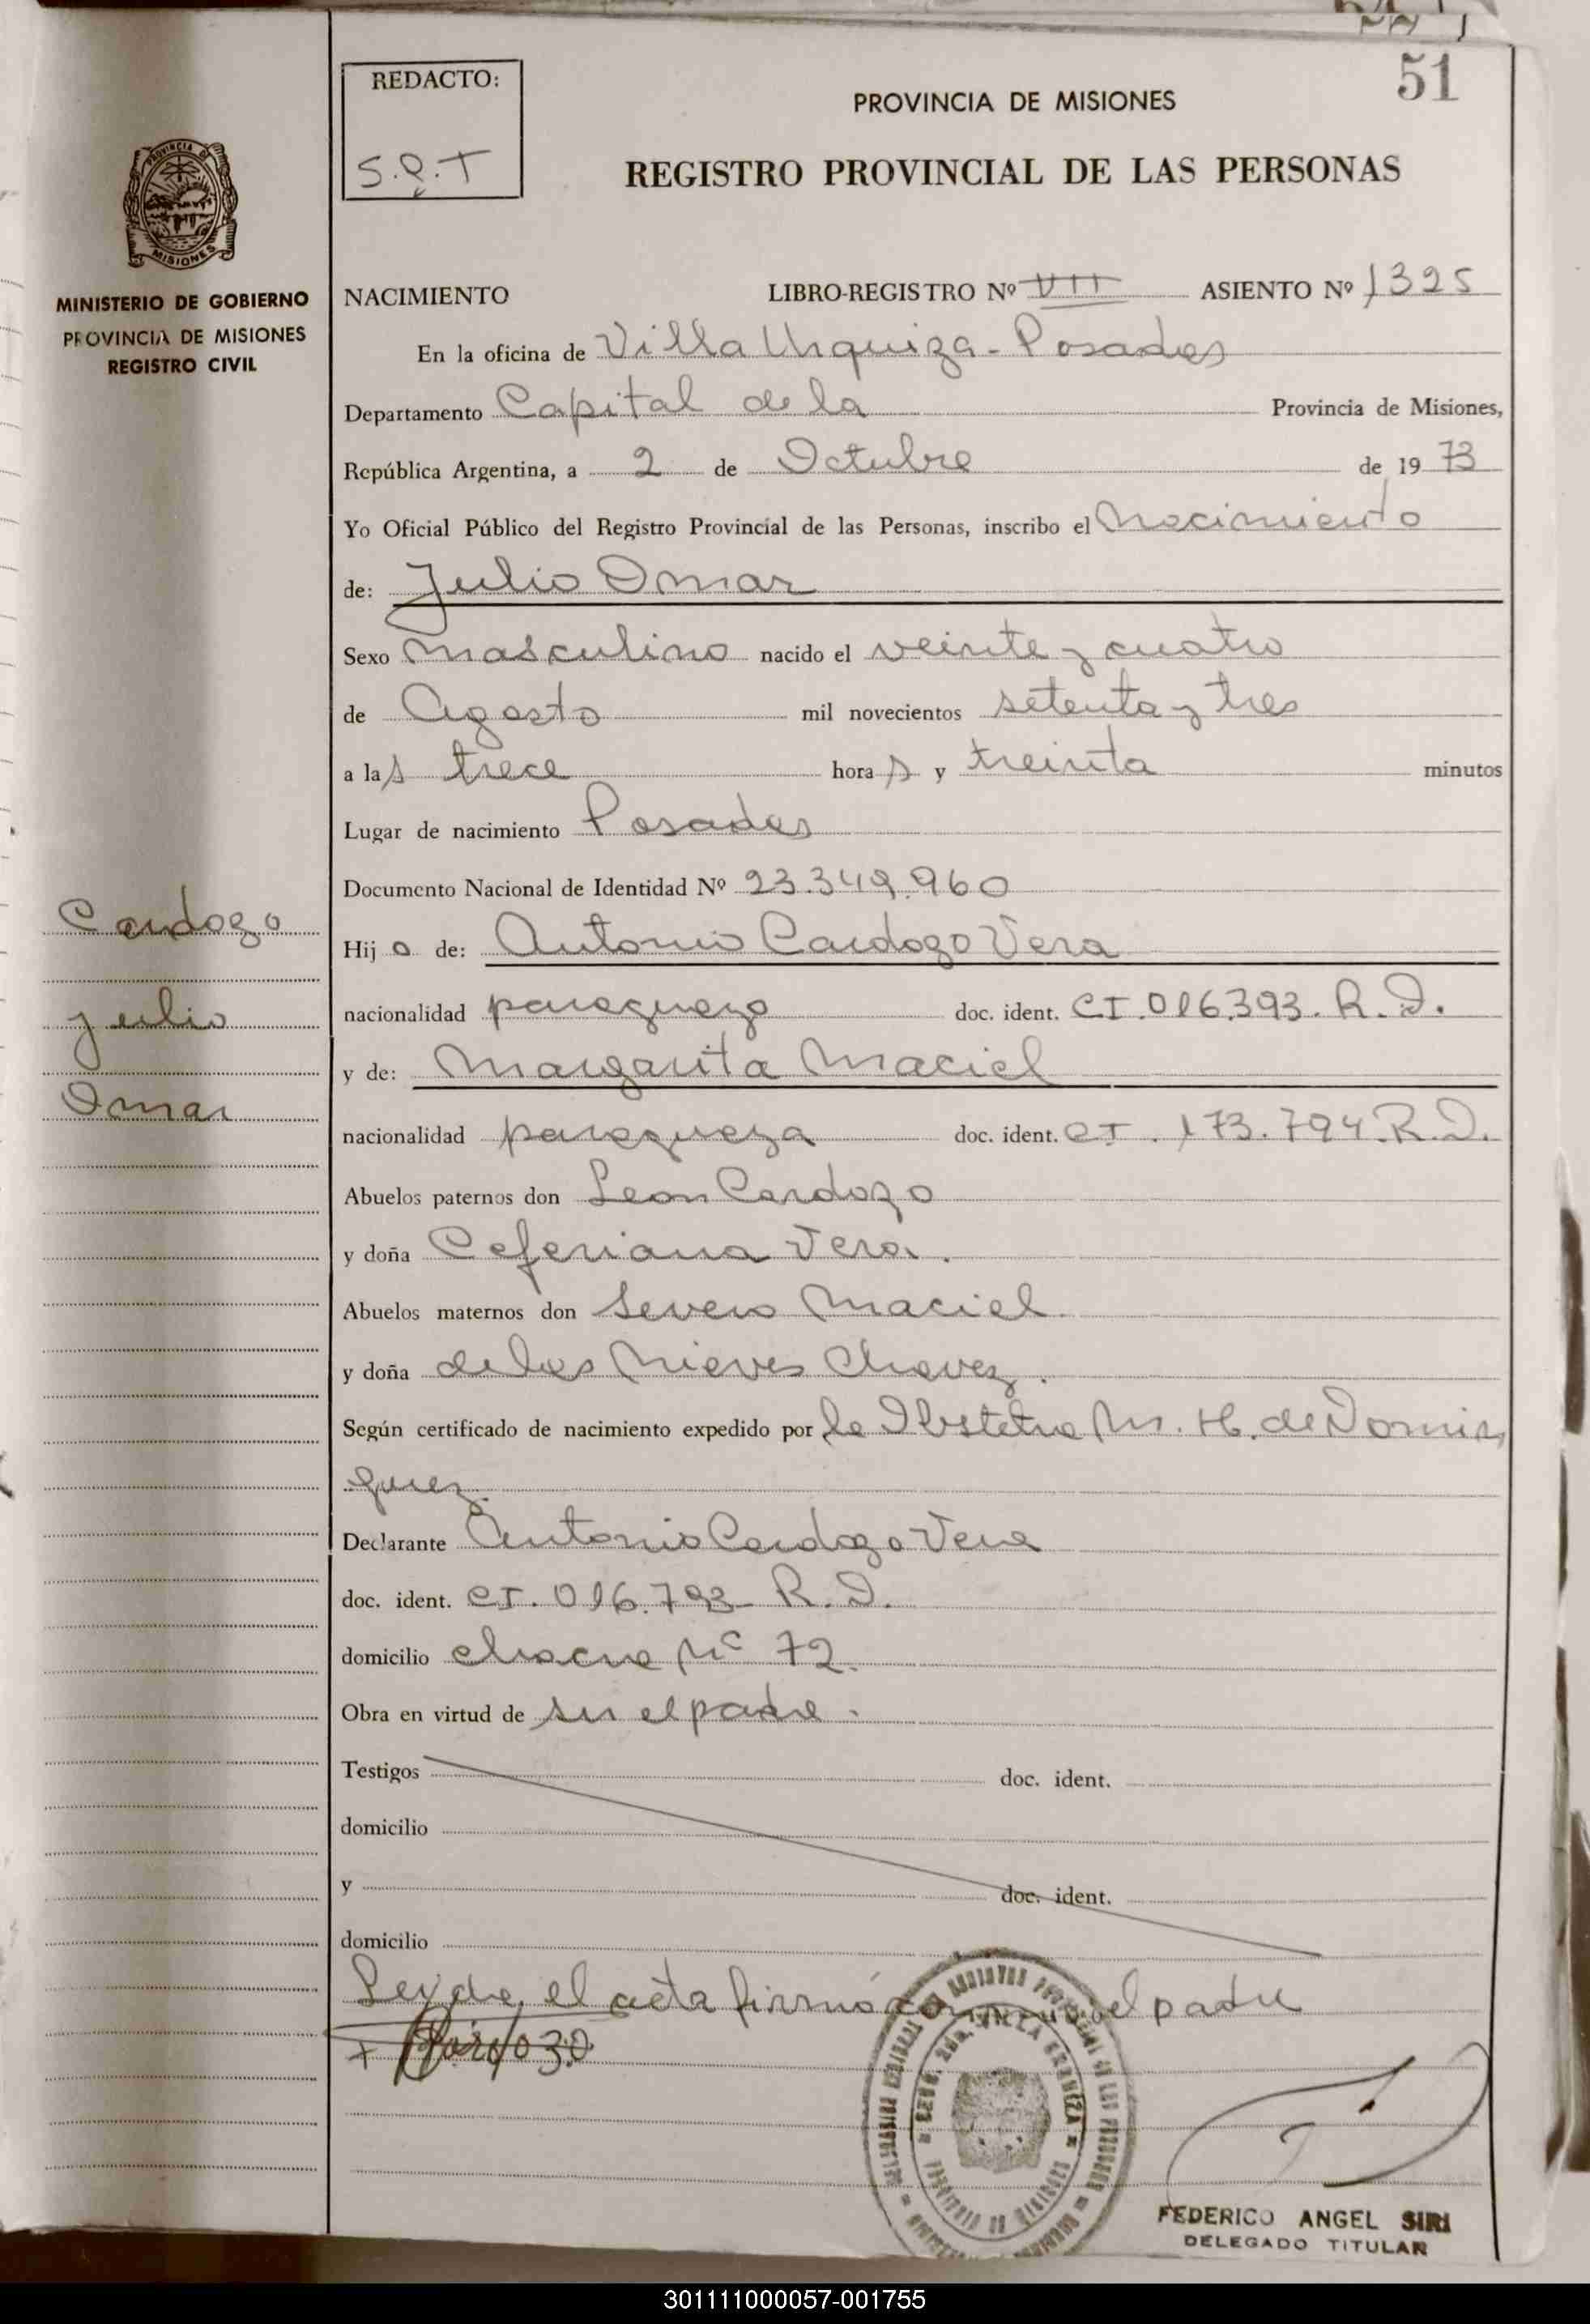 51
REDACTO:
S.R.T
PROVINCIA DE MISIONES
REGISTRO PROVINCIAL DE LAS PERSONAS
MISIONES
MINISTERIO DE GOBIERNO
PROVINCIA DE MISIONES
REGISTRO CIVIL
Cardozo
Julio
Omar
NACIMIENTO LIBRO-REGISTRO Nº VII ASIENTO Nº 1325
En la oficina de Villa Urquiza - Posadas
Departamento Capital de la Provincia de Misiones,
República Argentina, a 2 de Octubre de 1973
Yo Oficial Público del Registro Provincial de las Personas, inscribo el Nacimiento
de: Julio Omar
Sexo masculino nacido el veinte y cuatro
de Agosto mil novecientos setenta y tres
a las trece horas y treinta minutos
Lugar de nacimiento Posadas
Documento Nacional de Identidad Nº 23.349.960
Hijo de: Antonio Cardozo Vera
nacionalidad paraguayo doc. ident. CI.016.393. R.D.
y de: Margarita Maciel
nacionalidad paraguaya doc. ident. CI. 173.794. R.D.
Abuelos paternos don Leon Cardozo
y doña Ceferiana Vera.
Abuelos maternos don Severo Maciel.
y doña de las Nieves Chavez.
Según certificado de nacimiento expedido por la Obstetra M. H. de Domin
guez.
Declarante Antonio Cardozo Vera
doc. ident. CI. 016.793- R.D.
domicilio chacra Nº 72.
Obra en virtud de ser el padre.
Testigos doc. ident.
domicilio
y doc. ident.
domicilio
Leyda el acta firmó el padre
Cardozo
FEDERICO ANGEL SIRI
DELEGADO TITULAR
301111000057-001755